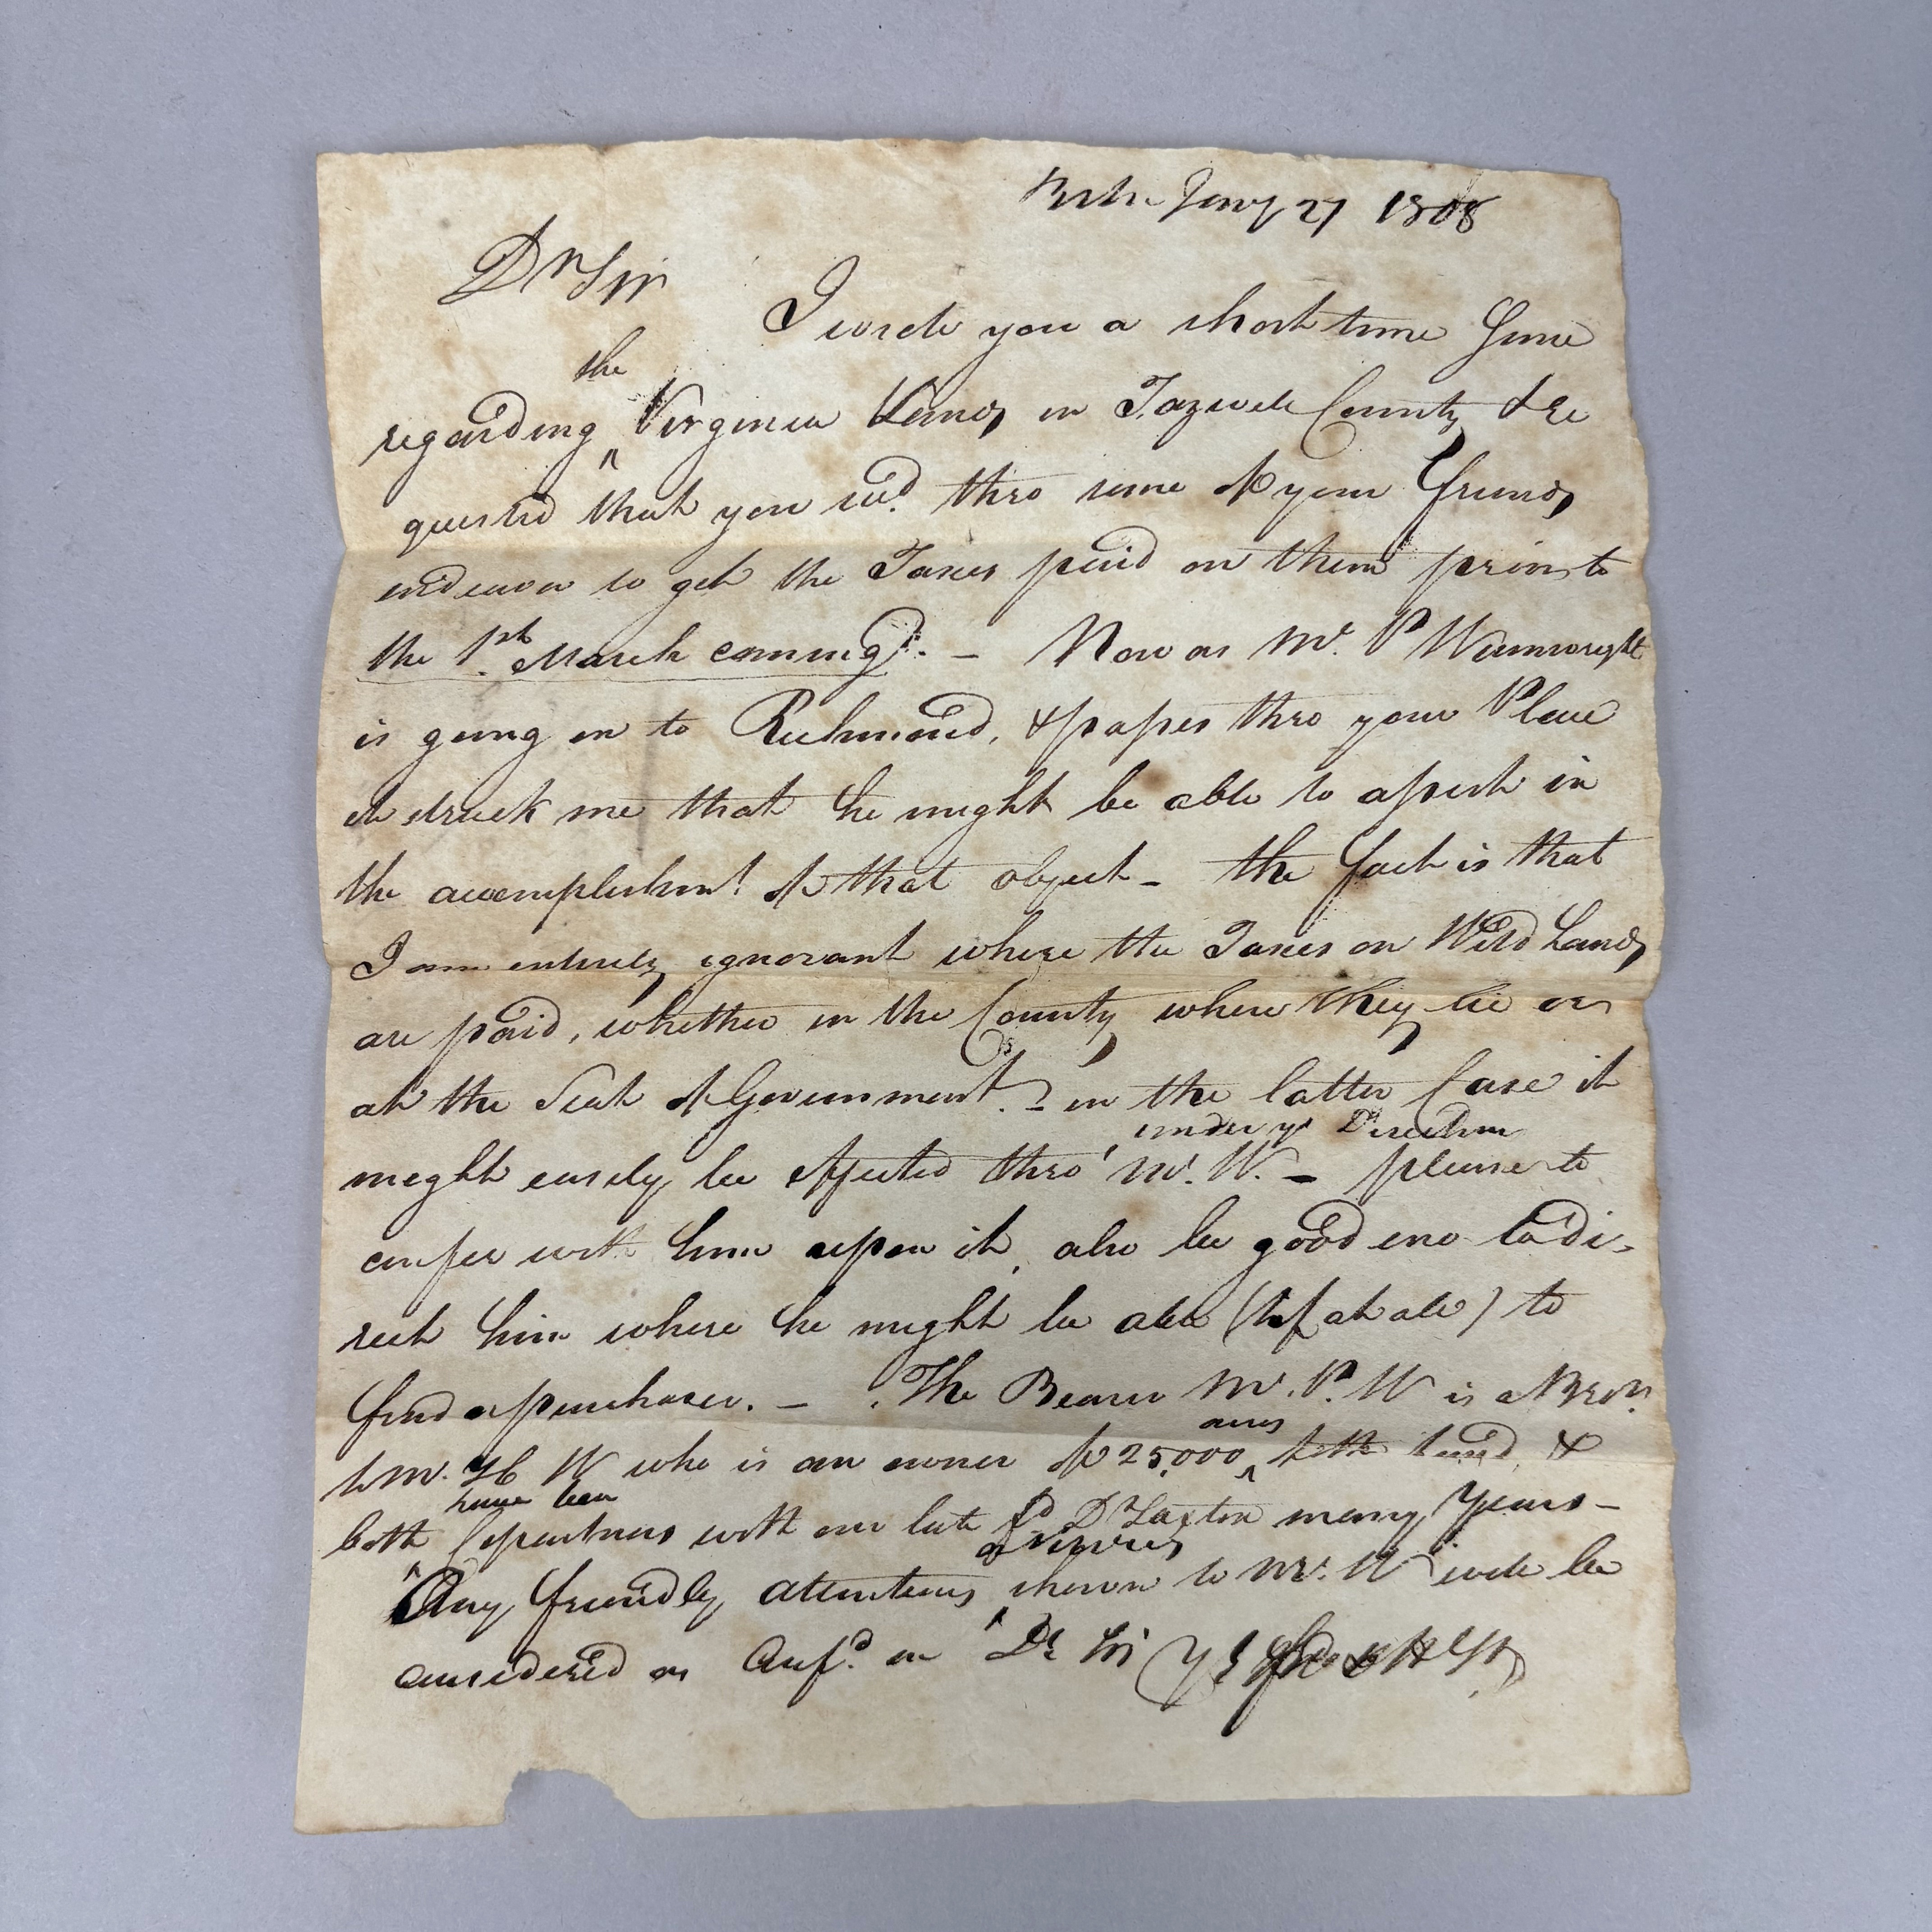 Jany 27 1808
Dr Sir
I wrote you a short time Since
the
regarding ^ Virginia Lands in Tazwell County & re
quested that you wd. thro some of your Friends
endeavor to get the Taxes paid on them prior to
the 1st. March coming. — Now as Mr. P Wainwright
is going on to Richmond, & passes thro your Place
it struck me that he might be able to assist in
the accomplishmt. of that object — the fact is that
I am entirely ignorant where the Taxes on Wild Lands
are paid, whether in the County where they lie or
at the Seat of Government. — in the latter Case it
under yr Direction
might easily be effected thro' Mr. W. — please to
confer with him upon it, also be good eno to di-
rect him where he might be able (if at all) to
find a purchaser. — The Bearer Mr. P. W is a Bror.
acres
to Mr. H W who is an owner of 25,000 ^ land, &
have been
both ^ Copartners with our late fd D many Years —
or services
Any friendly attentions ^ shewn to Mr. W will be
considered as Confd. on Dr Sir Yr